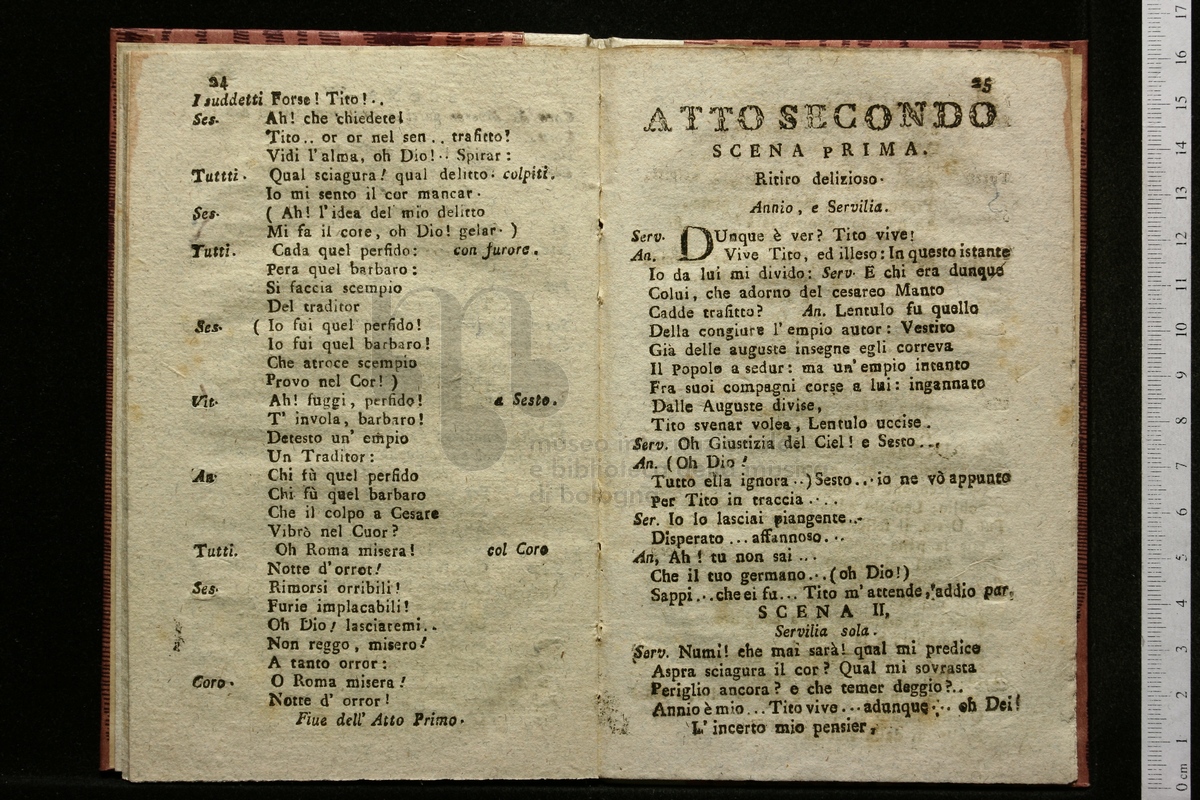 24
I suddetti Forse! Tito!..
Ses. Ah! che chiedete!
Tito.. or or nel sen.. trafitto!
Vidi l'alma, oh Dio!.. Spirar:
Tuttti. Qual sciagura! qual delitto. colpiti.
Io mi sento il cor mancar.
Ses. ( Ah! l'idea del mio delitto
Mi fa il core, oh Dio! gelar. )
Tutti. Cada quel perfido: con furore.
Pera quel barbaro:
Si faccia scempio
Del traditor
Ses. ( Io fui quel perfido!
Io fui quel barbaro!
Che atroce scempio
Provo nel Cor! )
Vit. Ah! fuggi, perfido! a Sesto.
T' invola, barbaro!
Detesto un' empio
Un Traditor:
An. Chi fù quel perfido
Chi fù quel barbaro
Che il colpo a Cesare
Vibrò nel Cuor?
Tutti. Oh Roma misera! col Coro
Notte d'orror!
Ses. Rimorsi orribili!
Furie implacabili!
Oh Dio! lasciatemi..
Non reggo, misero!
A tanto orror:
Coro. O Roma misera!
Notte d' orror!
Fiue dell' Atto Primo.
25
ATTO SECONDO
SCENA PRIMA.
Ritiro delizioso.
Annio, e Servilia.
Serv. DUnque è ver? Tito vive!
An. Vive Tito, ed illeso: In questo istante
Io da lui mi divido: Serv. E chi era dunque
Colui, che adorno del cesareo Manto
Cadde trafitto? An. Lentulo fu quello
Della congiura l' empio autor: Vestito
Già delle auguste insegne egli correva
Il Popolo a sedur: ma un' empio intanto
Fra suoi compagni corse a lui: ingannato
Dalle Auguste divise,
Tito svenar volea, Lentulo uccise.
Serv. Oh Giustizia del Ciel! e Sesto...
An. (Oh Dio!
Tutto ella ignora..) Sesto...io ne vò appunto
Per Tito in traccia....
Ser. Io lo lasciai piangente...
Disperato ... affannoso...
An, Ah! tu non sai ...
Che il tuo germano...(oh Dio!)
Sappi...che ei fu... Tito m'attende, addio par,
SCENA II,
Servilia sola.
Serv. Numi! che mai sarà! qual mi predice
Aspra sciagura il cor? Qual mi sovrasta
Periglio ancora? e che temer deggio?..
Annio è mio...Tito vive...adunque... oh Dei!
L' incerto mio pensier,
museo in
e biblio
di bologna
0 cm 1 2 3 4 5 6 7 8 9 10 11 12 13 14 15 16 17